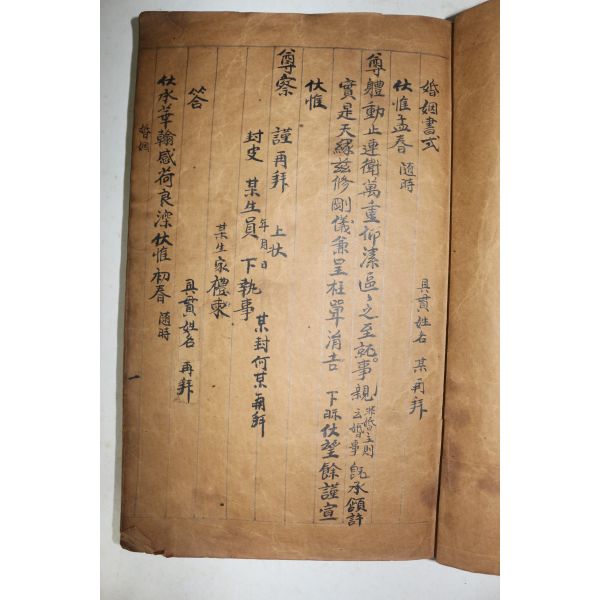 婚姻書式
具貫姓名 某再拜
伏惟孟春 隨時
尊體動止連衛萬重仰溸區〻之至就事親 非婚主則云婚事 旣承頷許
實是天緣茲修剛儀兼呈柱單涓吉 下眎伏望餘謹宣
伏惟
尊察 謹再拜 上狀
年月日
某封何某再拜
封皮 某生員 下執事
某生家禮柬
答
具貫姓名 再拜
伏承華翰感荷良深伏惟初春 隨時
婚姻
一